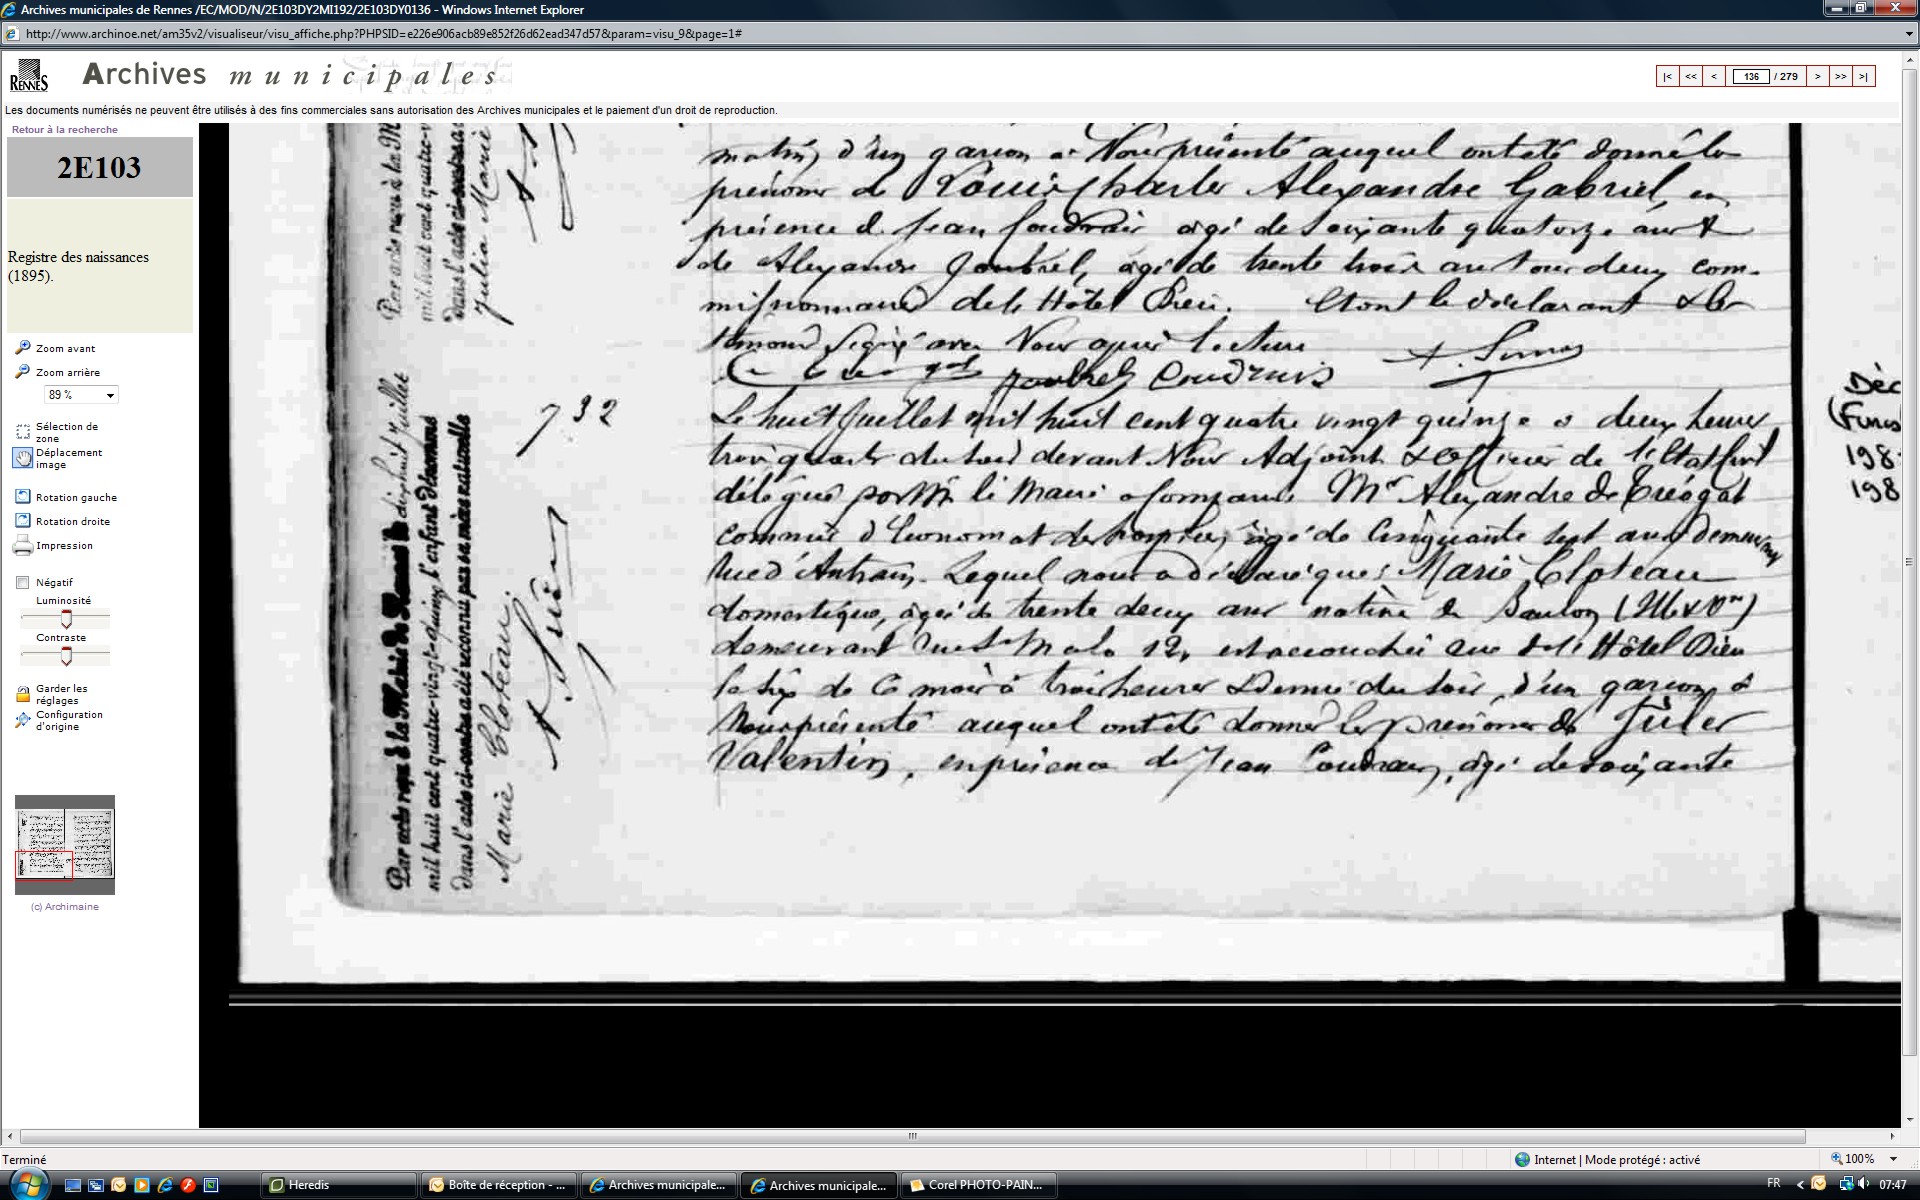 Archives municipales de Rennes /EC/MOD/N/2E103DY2MI192/2E103DY0136 - Windows Internet Explorer
http://www.archinoe.net/am35v2/visualiseur/visu_affiche.php?PHPSID=e226e906acb89e852f26d62ead347d57&param=visu_9&page=1#
RENNES Archives municipales
|< << < 136 / 279 > >> >|
Les documents numérisés ne peuvent être utilisés à des fins commerciales sans autorisation des Archives municipales et le paiement d'un droit de reproduction.
Retour à la recherche
2E103
Registre des naissances
(1895).
Zoom avant
Zoom arrière
89 %
Sélection de
zone
Déplacement
image
Rotation gauche
Rotation droite
Impression
Négatif
Luminosité
Contraste
Garder les
réglages
Configuration
d'origine
(c) Archimaine
Par acte reçu à la M
mil huit cent quatre-v
dans l'acte ci-contre a
Julia Marie
matin, d'un garçon à Nous présenté auquel ont été donné les
prénoms de Louis Charles Alexandre Gabriel, en
présence de Jean Coudrais âgé de soixante quatorze ans &
de Alexandre Joubrel, âgé de trente trois ans tous deux com-
missionnaires de l'Hôtel Dieu. Et ont le déclarant & les
témoins signé avec Nous après lecture
Joubrel Coudrais
732
Par acte reçu à la Mairie de Rennes le dix huit Juillet
mil huit cent quatre-vingt-quinze, l'enfant dénommé
dans l'acte ci-contre a été reconnu par sa mère naturelle
Marie Cloteau.
Le huit Juillet mil huit cent quatre vingt quinze à deux heures
trois quarts du soir devant Nous Adjoint & Officier de l'Etat Civil
délégué par Mr le Maire a comparu Mr Alexandre de Tréogat
commis d'économat des hospices, âgé de Cinquante sept ans demeurant
rue d'Antrain. Lequel nous a déclaré que: Marie Cloteau
domestique, âgée de trente deux ans native de Baulon (Ille & Vne)
demeurant rue St Malo 12, est accouchée rue de l'Hôtel Dieu
le six de ce mois à trois heures & Demie du soir, d'un garçon à
Nous présenté auquel ont été donner les prénoms de Jules
Valentin, en présence de Jean Coudrais, âgé de soixante
Déc
198
198
Terminé
Internet | Mode protégé : activé
100%
Heredis
Boîte de réception - ...
Archives municipale...
Archives municipale...
Corel PHOTO-PAIN...
FR
07:47